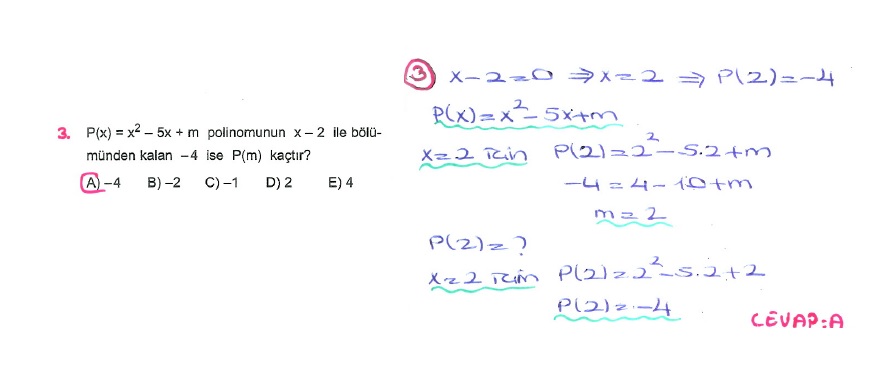 3. P(x) = x² – 5x + m polinomunun x – 2 ile bölü-
münden kalan –4 ise P(m) kaçtır?
A) –4 B) –2 C) –1 D) 2 E) 4
③ x-2=0 ⇒ x=2 ⇒ P(2)=-4
P(x)=x²-5x+m
x=2 için P(2)=2²-5.2+m
-4=4-10+m
m=2
P(2)=?
x=2 için P(2)=2²-5.2+2
P(2)=-4
CEVAP:A